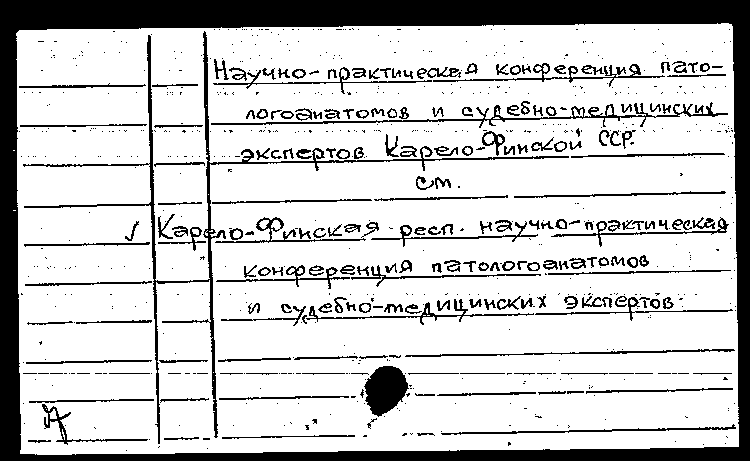 Научно-практическая конференция пато-
логоанатомов и судебно-медицинских
экспертов Карело-Финской ССР.
см.
√ Карело-Финская респ. научно-практическая
конференция патологоанатомов
и судебно-медицинских экспертов